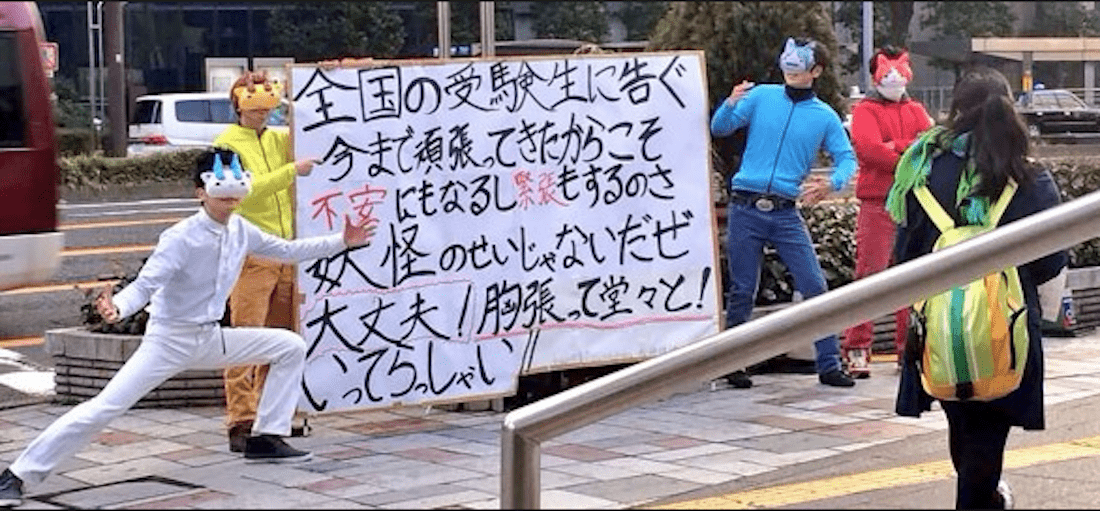 全国の受験生に告ぐ
今まで頑張ってきたからこそ
不安にもなるし緊張もするのさ
妖怪のせいじゃないだぜ
大丈夫!胸張って堂々と!
いってらっしゃい!!